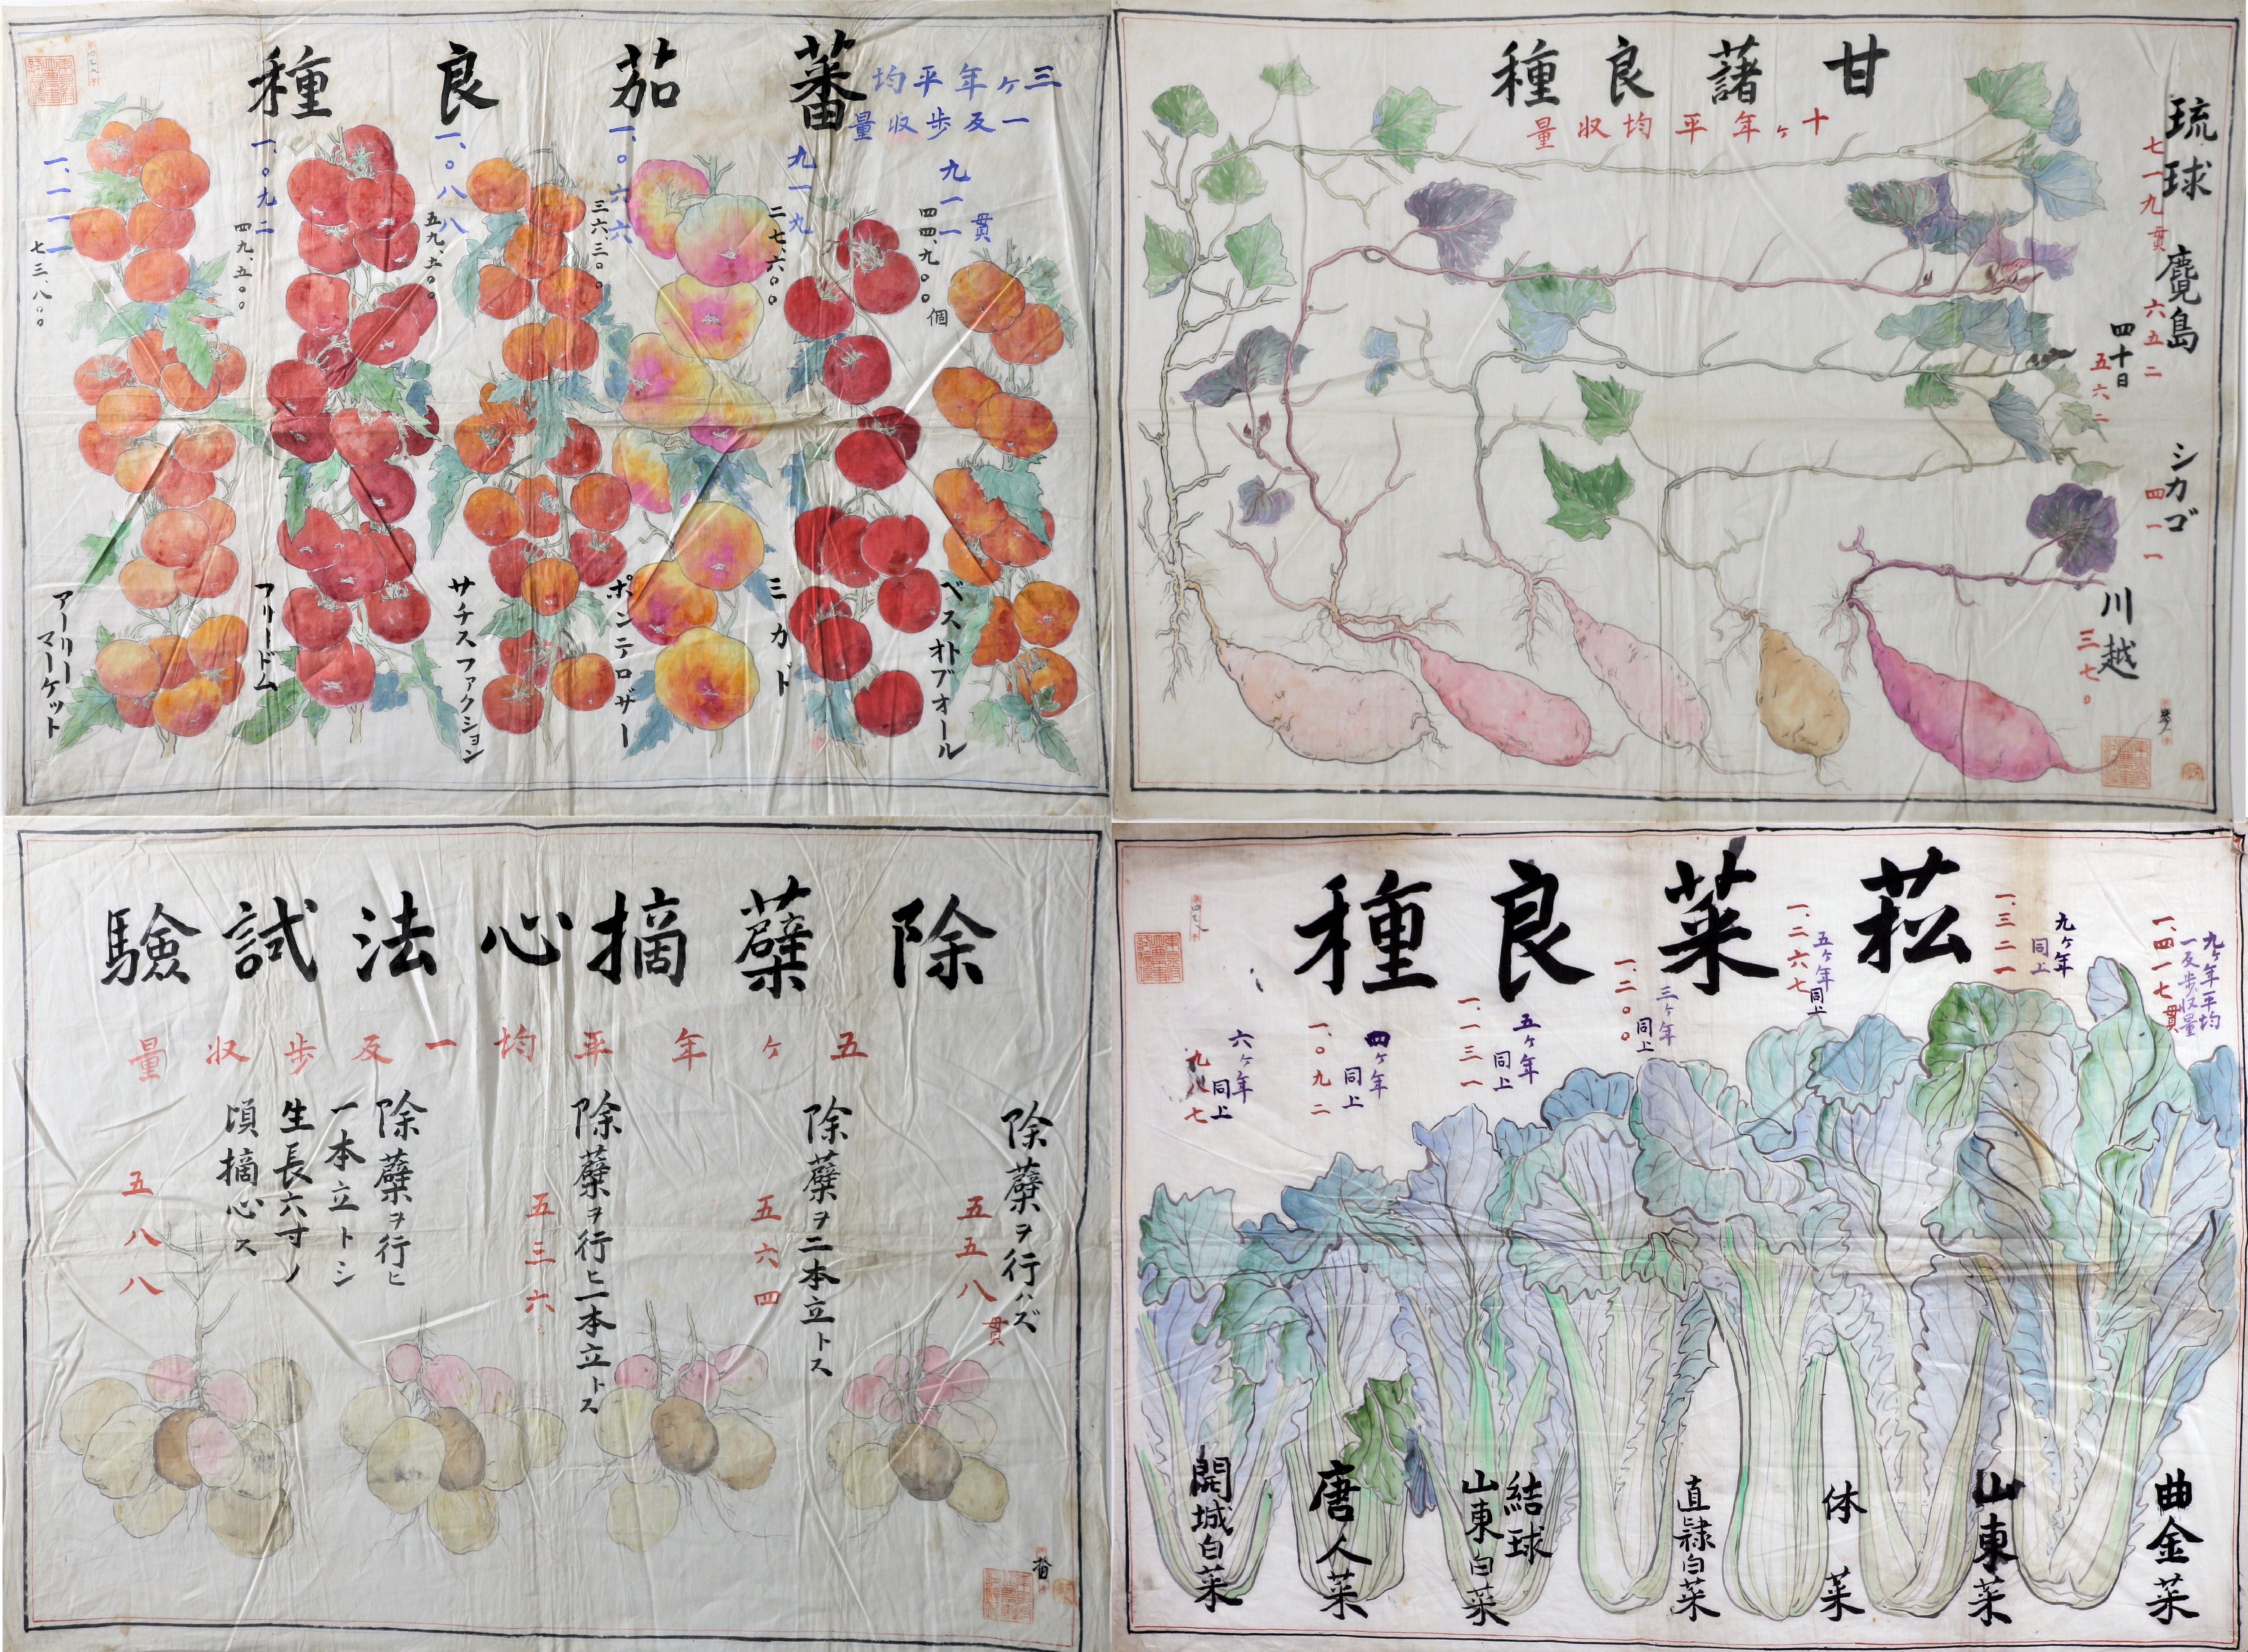 蕃茄良種
三ヶ年平均
一反歩収量
九一一貫
四四、九〇〇個
ベスオトブオール
九一九
二七、六〇〇
ミカド
一、〇六六
三六、三〇〇
ポンテロザー
一、〇八八
五九、五〇〇
サチスファクション
一、〇九二
四九、五〇〇
フリードム
一、一一一
七三、八〇〇
アーリー
マーケット
甘藷良種
十ヶ年平均収量
琉球
七一九貫
麑島
六五二
四十日
五六二
シカゴ
四一一
川越
三七〇
除蘗摘心法試驗
五ヶ年平均一反歩収量
除蘗ヲ行ハズ
五五八貫
除蘗ヲ二本立トス
五六四
除蘗ヲ行ヒ二本立トス
五三六
除蘗ヲ行ヒ
一本立トシ
生長六寸ノ
頃摘心ス
五八八
菘菜良種
九ヶ年平均
一反歩収量
一、四一七貫
曲金菜
九ヶ年
同上
一、三二一
山東菜
五ヶ年
同上
一、二六七
体菜
三ヶ年
同上
一、二〇〇
直隷白菜
五ヶ年
同上
一、一三一
結球
山東白菜
四ヶ年
同上
一、〇九二
唐人菜
六ヶ年
同上
九八七
開城白菜